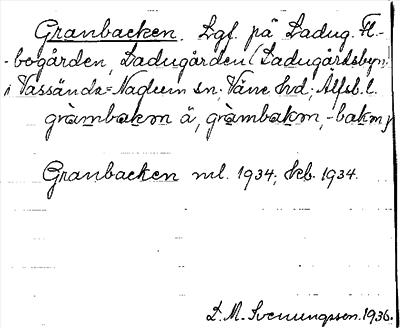 Granbacken. Lgf. på Ladug. Fl-
-bogården, Ladugården (Ladugårdsbyn)
i Vassända-Naglum sn; Väne hd; Älfsb. l.
gràmbakɷn ä, gràmbakɷn, -bakɷn
Granbacken ml. 1934; kb. 1934.
L. M. Svenungsson. 1936.